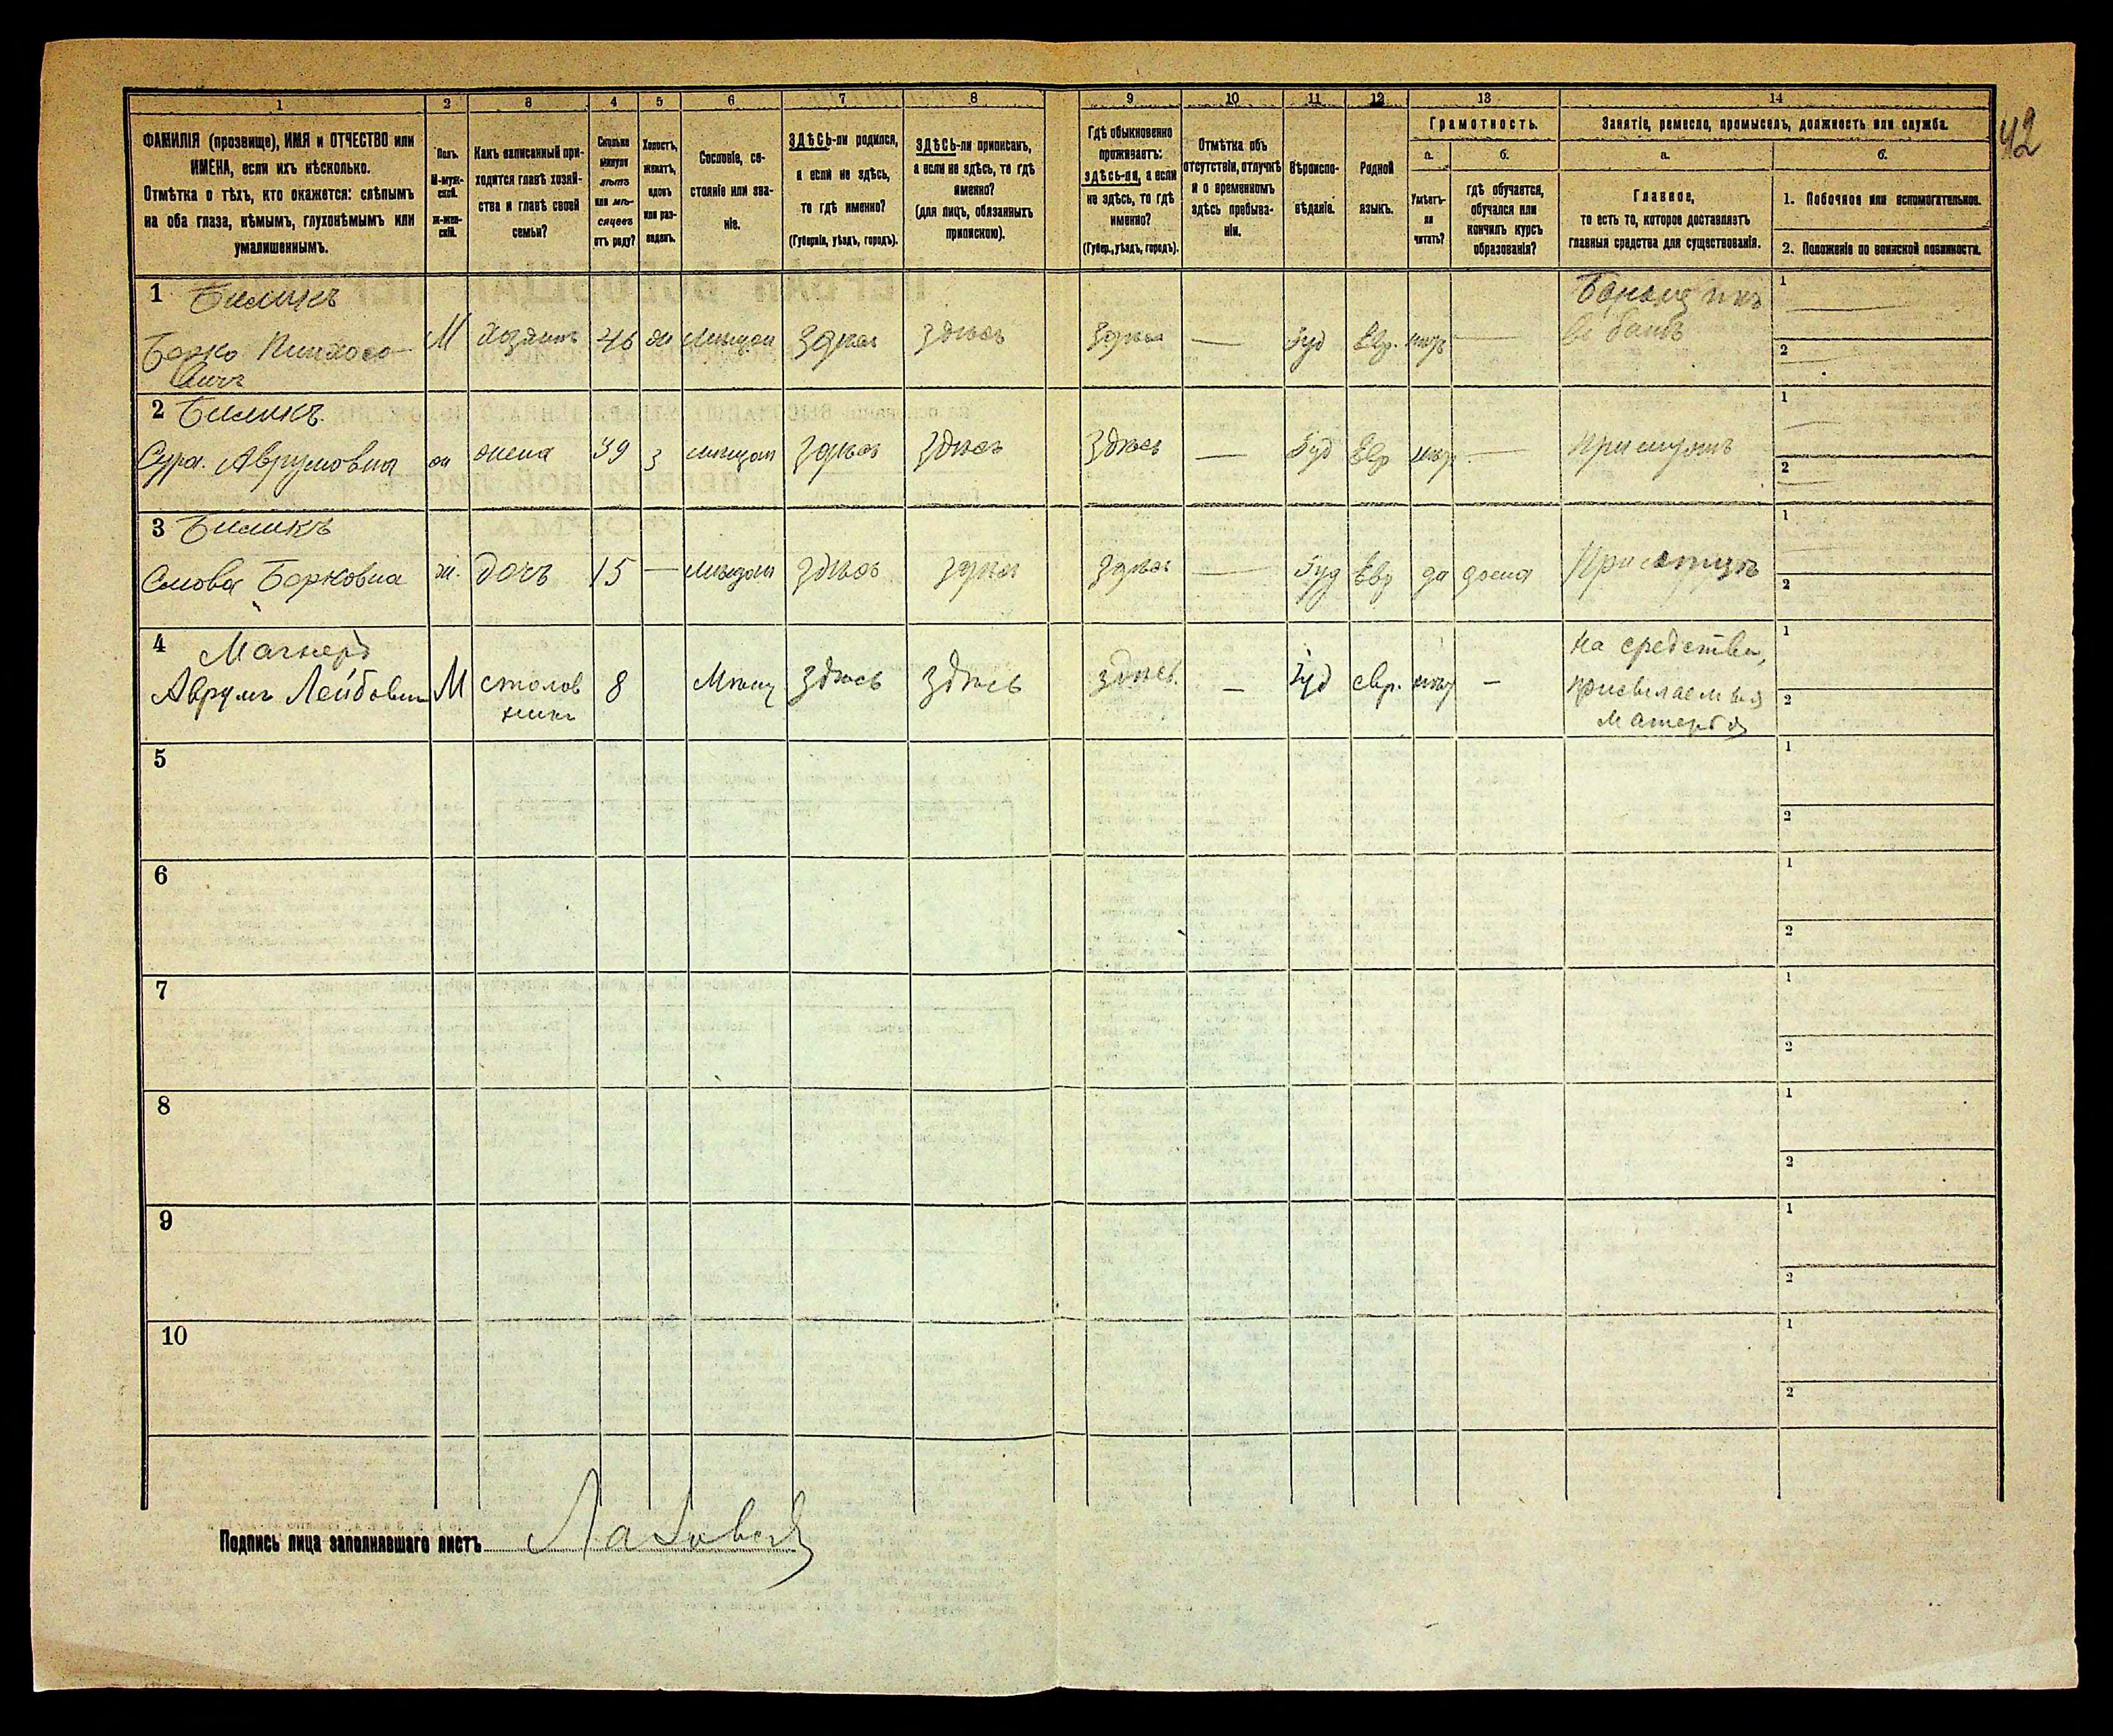 1 2 3 4 5 6 7 8 9 10 11 12 13 14
42
ФАМИЛІЯ (прозвище), ИМЯ и ОТЧЕСТВО или
ИМЕНА, если ихъ нѣсколько.
Отмѣтка о тѣхъ, кто окажется: слѣпымъ
на оба глаза, нѣмымъ, глухонѣмымъ или
умалишеннымъ.
Полъ.
М-муж-
ской.
Ж-жен-
скій.
Какъ записанный при-
ходится главѣ хозяй-
ства и главѣ своей
семьи?
Сколько
минуло
лѣтъ
или мѣ-
сяцевъ
отъ роду?
Холостъ,
женатъ,
вдовъ
или раз-
веденъ.
Сословіе, со-
стояніе или зва-
ніе.
ЗДѢСЬ-ли родился,
а если не здѣсь,
то гдѣ именно?
(Губернія, уѣздъ, городъ).
ЗДѢСЬ-ли приписанъ,
а если не здѣсь, то гдѣ
именно?
(для лицъ, обязанныхъ
припискою).
Гдѣ обыкновенно
проживаетъ:
здѣсь-ли, а если
не здѣсь, то гдѣ
именно?
(Губер., уѣздъ, городъ).
Отмѣтка объ
отсутствіи, отлучкѣ
и о временномъ
здѣсь пребыва-
ніи.
Вѣроиспо-
вѣданіе.
Родной
языкъ.
Грамотность.
а. б.
Умѣетъ-
ли
читать?
гдѣ обучается,
обучался или
кончилъ курсъ
образованія?
Занятіе, ремесло, промыселъ, должность или служба.
а. б.
Главное,
то есть то, которое доставляетъ
главныя средства для существованія.
1. Побочное или вспомогательное.
2. Положеніе по воинской повинности.
1 Биликъ
Берко Пинхосо-
вичъ
М хозяинъ 46 ж мѣщан здѣсь здѣсь здѣсь — Iуд Евр. —
въ банѣ
1
2
2 Биликъ
Сура Аврумовна ж жена 39 з мѣщан здѣсь здѣсь здѣсь — Iуд Евр —
при мужѣ
1
2
3 Биликъ
Слова Берковна ж. дочь 15 — мѣщан здѣсь здѣсь здѣсь — Iуд Евр да дома
При отцѣ
1
2
4
Аврумъ Лейбович М столов
никъ
8 Мѣщ здѣсь здѣсь здѣсь. — Iуд евр. —
на средства,
присылаемыя
матерью
1
2
5
1
2
6
1
2
7
1
2
8
1
2
9
1
2
10
1
2
Подпись лица заполнявшаго листъ